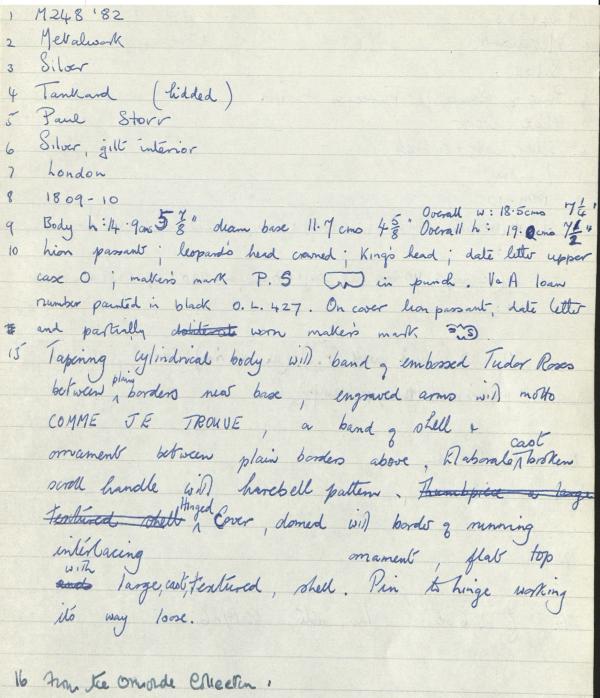 1 M248 '82
2 Metalwork
3 Silver
4 Tankard (lidded)
5 Paul Storr
6 Silver, gilt interior
7 London
8 1809-10
Overall w: 18.5cms 7 1/4"
9 Body h: 14.9cms 5 7/8" diam base 11.7 cms 4 5/8" Overall h: 19.0cms 7 1/2"
10 Lion passant; leopard's head crowned; King's head; date letter upper
case O; maker's mark P.S in punch. V&A loan
number painted in black O.L. 427. On cover lion passant, date letter
and partially obliterate worn maker's mark
15 Tapering cylindrical body with band of embossed Tudor Roses
between plain borders near base, engraved arms with motto
COMME JE TROUVE, a band of shell &
ornament between plain borders above, Elaborate cast broken
scroll handle with harebell pattern. Thumbpiece a large
textured shell Hinged Cover, domed with border of running
interlacing ornament, flat top
and with large, cast, textured, shell. Pin to hinge working
its way loose.
16 From the Ormonde Collection.